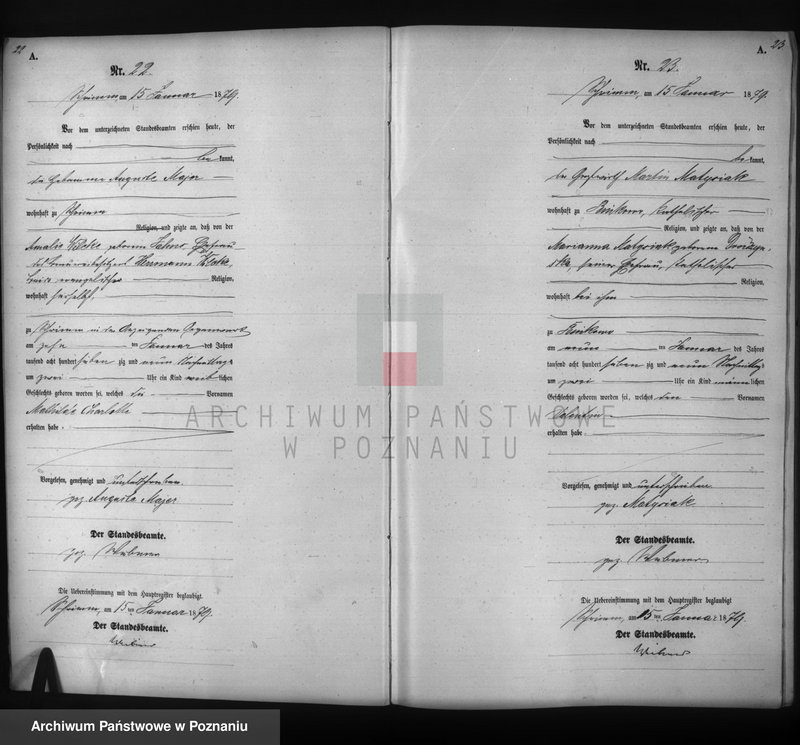 22
A.
Nr. 22.
Schrimm, am 15 Januar 1879.
Vor dem unterzeichneten Standesbeamten erschien heute, der
Persönlichkeit nach
be kannt,
die Hebamme Auguste Majer
wohnhaft zu Schrimm
Religion, und zeigte an, daß von der
Amalie geborenen Ehefrau
des Hermann
beide evangelischer Religion,
wohnhaft daselbst,
zu Schrimm in der Anzeigenden Gegenwart
am zehn ten Januar des Jahres
tausend acht hundert sieben zig und neun Nachmittags
um zwei Uhr ein Kind weib lichen
Geschlechts geboren worden sei, welches die Vornamen
Mathilde Charlotte
erhalten habe
Vorgelesen, genehmigt und unterschrieben
gez. Auguste Majer
Der Standesbeamte.
gez.
Die Uebereinstimmung mit dem Hauptregister beglaubigt
Schrimm, am 15 ten Januar 1879.
Der Standesbeamte.
A.
23
Nr. 23.
Schrimm, am 15 Januar 1879.
Vor dem unterzeichneten Standesbeamten erschien heute, der
Persönlichkeit nach
be kannt,
der Martin Matysiak
wohnhaft zu katholischer
Religion, und zeigte an, daß von der
Marianna Matysiak geborene
seiner Ehefrau, katholischer
Religion,
wohnhaft bei ihm
zu
am neun ten Januar des Jahres
tausend acht hundert sieben zig und neun Nachmittags
um zwei Uhr ein Kind männ lichen
Geschlechts geboren worden sei, welches den Vornamen
Valentin
erhalten habe
Vorgelesen, genehmigt und unterschrieben
gez. Matysiak
Der Standesbeamte.
gez.
Die Uebereinstimmung mit dem Hauptregister beglaubigt
Schrimm, am 15 ten Januar 1879.
Der Standesbeamte.
ARCHIWUM PAŃSTWOWE
W POZNANIU
Archiwum Państwowe w Poznaniu